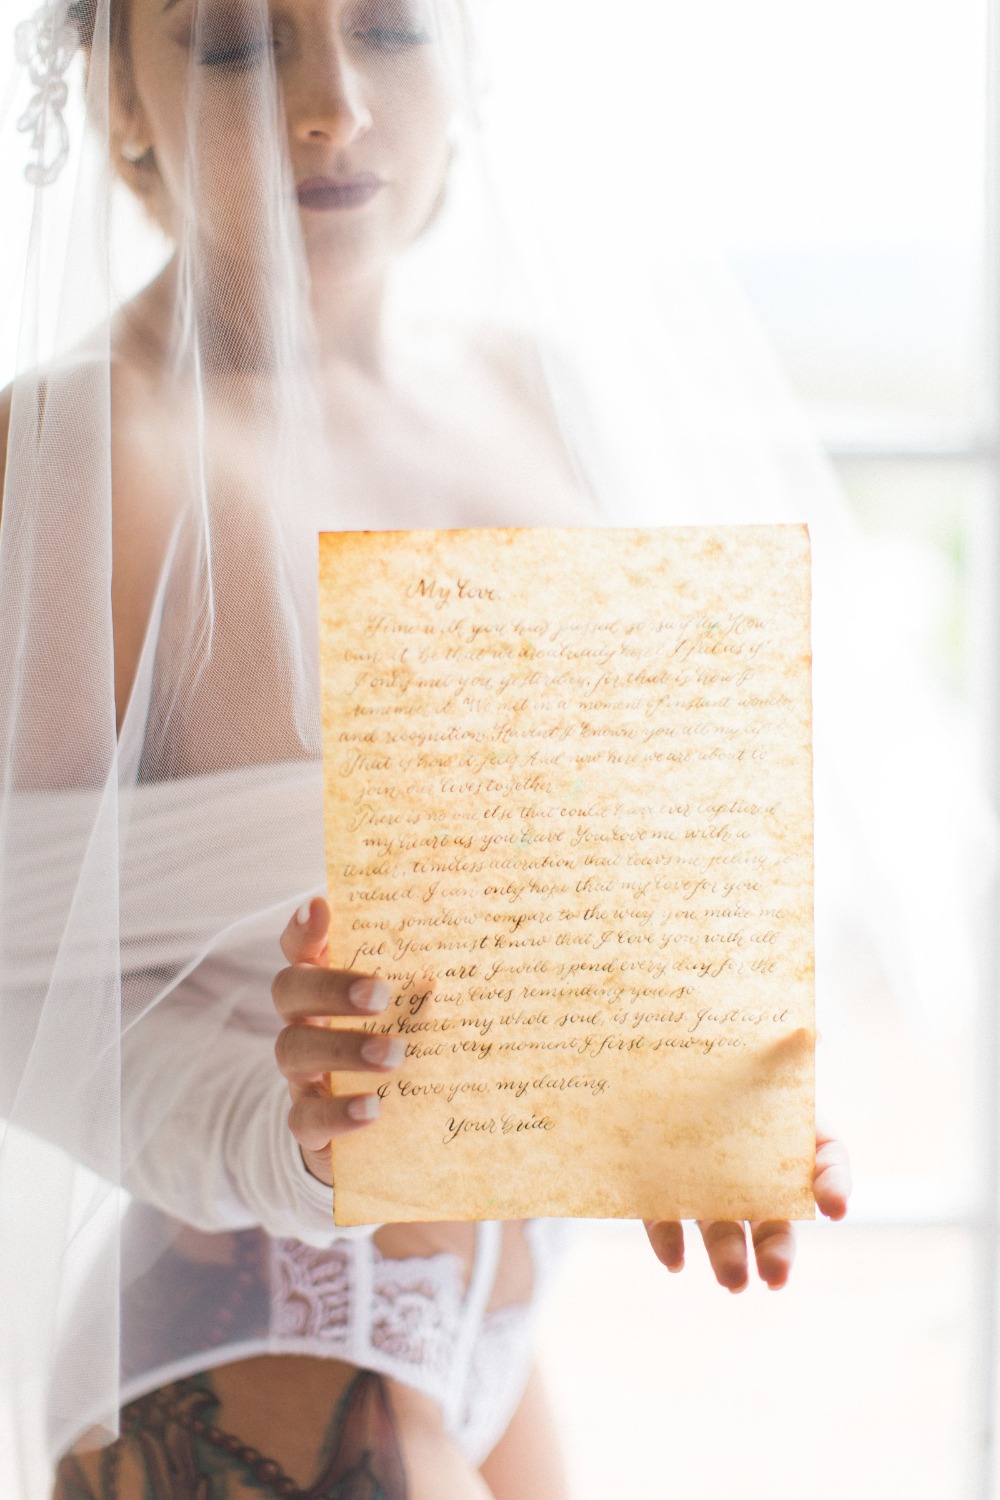 My Love,
Time with you has passed so swiftly. How
can it be that we are already here? I feel as if
I only met you yesterday, for that is how I
remember it. We met in a moment of instant wonder
and recognition. Haven't I known you all my life?
That is how it feels. And now here we are about to
join our lives together.
There is no one else that could have ever captured
my heart as you have. You love me with a
tender, timeless adoration that leaves me feeling so
valued. I can only hope that my love for you
can somehow compare to the way you make me
feel. You must know that I love you with all
of my heart. I will spend every day for the
of our lives reminding you so
My heart, my whole soul, is yours. Just as it
that very moment I first saw you.
I love you, my darling.
Your bride